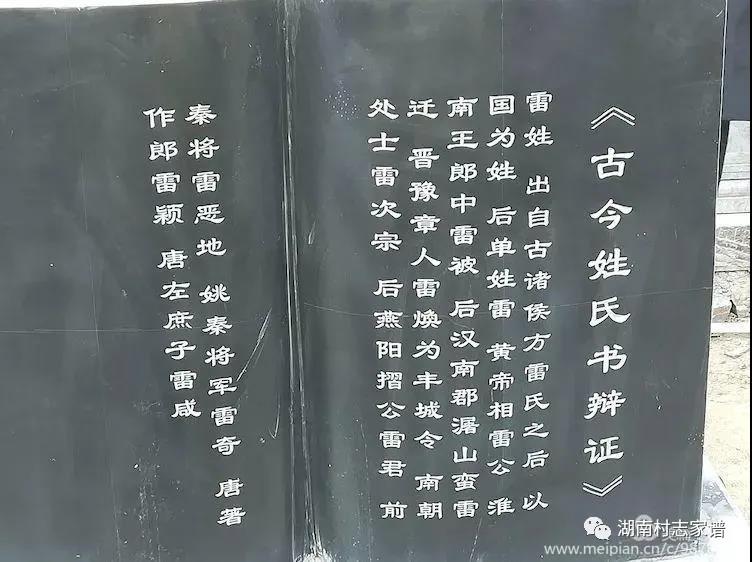 《古今姓氏书辩证》
雷姓 出自古诸侯方雷氏之后 以
国为姓 后单姓雷 黄帝相雷公 淮
南王郎中雷被 后汉南郡潺山蛮雷
迁 晋豫章人雷焕为丰城令 南朝
处士雷次宗 后燕阳摺公雷君 前
秦将雷恶地 姚秦将军雷奇 唐著
作郎雷颖 唐左庶子雷咸
湖南村志家谱
www.meipian.cn/c/98